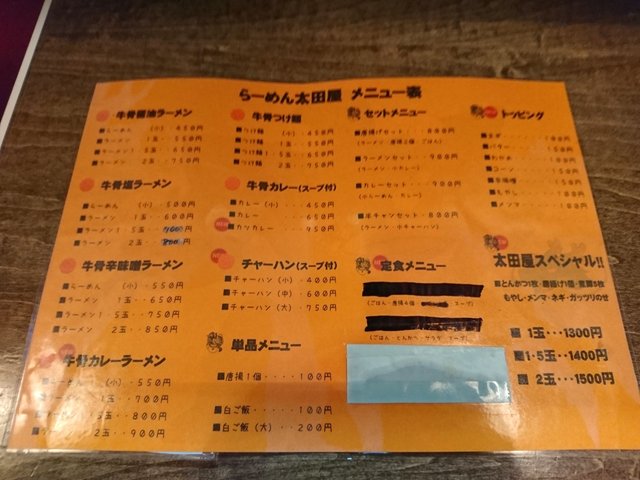 らーめん太田屋 メニュー表
牛骨醤油ラーメン
■らーめん (小)・450円
■ラーメン 1玉・・550円
■ラーメン1.5玉・・650円
■ラーメン 2玉・・750円
牛骨塩ラーメン
■らーめん (小)・・500円
■ラーメン 1玉・・600円
■ラーメン1.5玉・・700円
■ラーメン 2玉・・800円
牛骨辛味噌ラーメン
■らーめん (小)・550円
■ラーメン 1玉・・650円
■ラーメン1.5玉・・750円
■ラーメン 2玉・・850円
牛骨カレーラーメン
(小)・・550円
1玉・・700円
5玉・・800円
2玉・・900円
牛骨つけ麺
■つけ麺 (小)・450円
■つけ麺 1玉・・550円
■つけ麺1.5玉・・650円
■つけ麺 2玉・・750円
牛骨カレー(スープ付)
■カレー(小)・・・450円
■カレー・・・・650円
■カツカレー・・・950円
チャーハン(スープ付)
■チャーハン(小)・・400円
■チャーハン(中)・・600円
■チャーハン(大)・・750円
単品メニュー
■唐揚1個・・・・100円
■白ご飯・・・・・100円
■白ご飯(大)・・200円
セットメニュー
■唐揚げセット・・・880円
(ラーメン・唐揚4個・ごはん)
■ラーメンセット・・・980円
(ラーメン・小カレー)
■カレーセット・・・900円
(小らーめん・カレー)
■半チャンセット・・800円
(ラーメン・小チャーハン)
定食メニュー
(ごはん・唐揚6個 スープ)
(ごはん・とんかつ・サラダ スープ)
トッピング
■ネギ
■バター・・・・150円
■わかめ
■コーン・・・・150円
■辛味噌・・・・150円
■もやし
■メンマ
太田屋スペシャル!!
■とんかつ1枚・唐揚げ1個・煮豚5枚
もやし・メンマ・ネギ・ガッツリのせ
1玉・・・1300円
1.5玉・・1400円
2玉・・・1500円